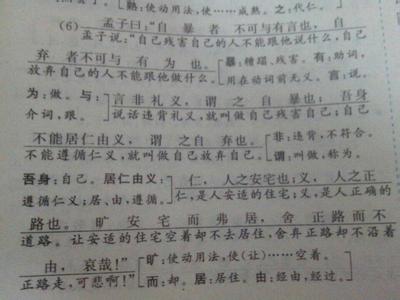 熟:使动用法,使……成熟。之:代仁。
(6) 孟子曰:“自暴者不可与有言也,自
孟子说:“自己残害自己的人不能跟他说什么,自己
弃者不可与有为也。
放弃自己的人不能跟他做什么。
暴:糟蹋、残害。有:助词,
用在动词前无义。言:说。
为:做。与:
介词,跟。
言非礼义,谓之自暴也;吾身
说话违背礼义,就叫做自己残害自己;
不能居仁由义,谓之自弃也。
不能遵循仁义,就叫做自己放弃自己。
非:违背,不符合。
谓:叫做,称为。
吾身:自己。居仁由义:
遵循仁义;居、由,遵循。
仁,人之安宅也;义,人之正
仁,是人安适的住宅;义,是人正确的
路也。旷安宅而弗居,舍正路而不
道路。让安适的住宅空着却不去居住,舍弃正路却不沿着
由,哀哉!”
正路走,可悲啊!”
旷:使动用法,使(让)……空着。
而:却。居:居住。由:经由,经过。